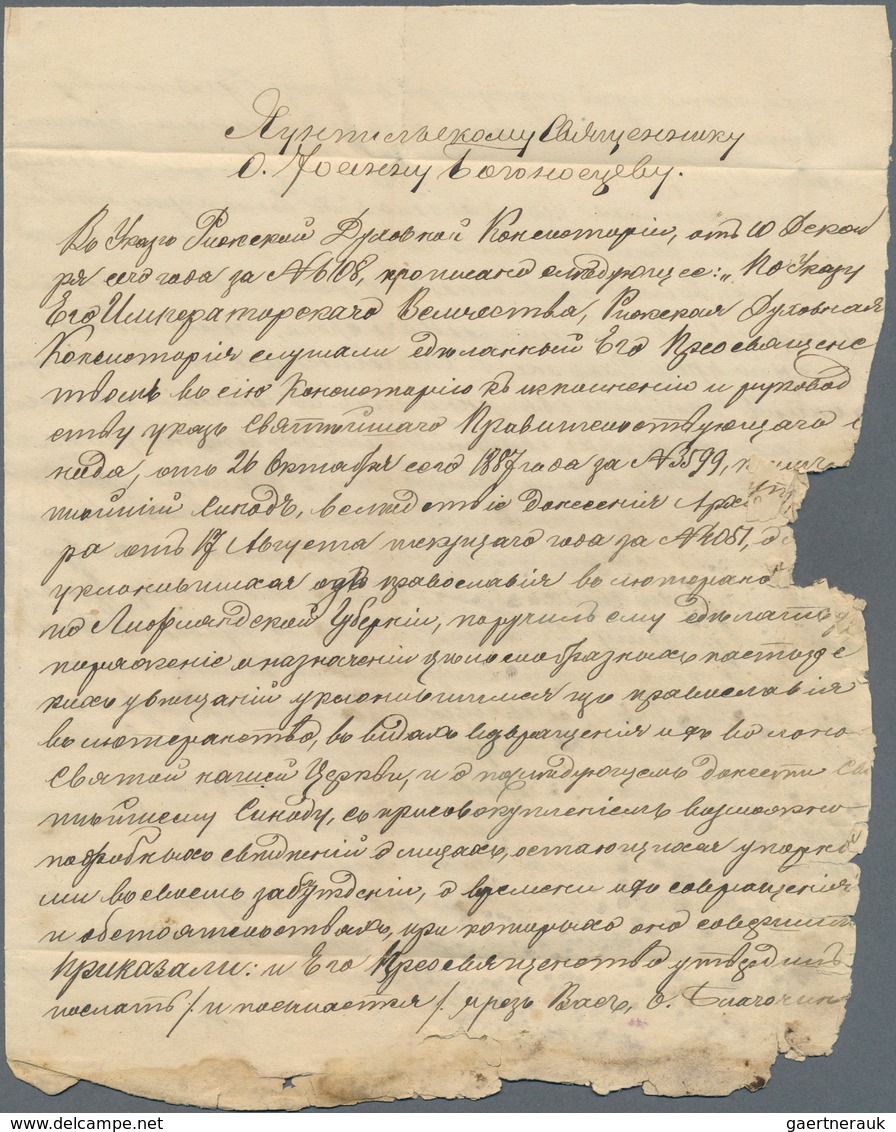 Яунпильскому Священнику
О. Іоанну Богоносцеву.
Въ Указѣ Рижской Духовной Консисторіи, отъ 10 Декаб
ря сего года за № 6108, прописано слѣдующее: „По Указу
Его Императорскаго Величества, Рижская Духовная
Консисторія слушали сданный Его Преосвященс
твомъ въ сію Консисторію къ исполненію и руковод
ству указъ Святѣйшаго Правительствующаго
нода, отъ 26 Октября сего 1887 года за № 3599,
тѣйшій Синодъ, вслѣдствіе донесенія
ра отъ 17 Августа текущаго года за № 2051,
уклонившихся отъ православія въ лютеранс
по Лифляндской Губерніи, поручилъ ему сдѣлать
поряженіе о назначеніи цѣлесообразныхъ пастырс
кихъ увѣщаній уклонившимся изъ православія
въ лютеранство, въ видахъ возвращенія ихъ въ лоно
Святой нашей Церкви, и о послѣдующемъ донести Свя
тѣйшему Синоду, съ присовокупленіемъ возможно
подробныхъ свѣдѣній о лицахъ, остающихся упорны
ми въ своемъ заблужденіи, о времени ихъ совращенія
и обстоятельствахъ, при которыхъ оно совершил
Приказали: и Его Преосвященство утвердилъ
послать /: и посылается /: чрезъ Васъ, о. Благочин
gaertnerauk